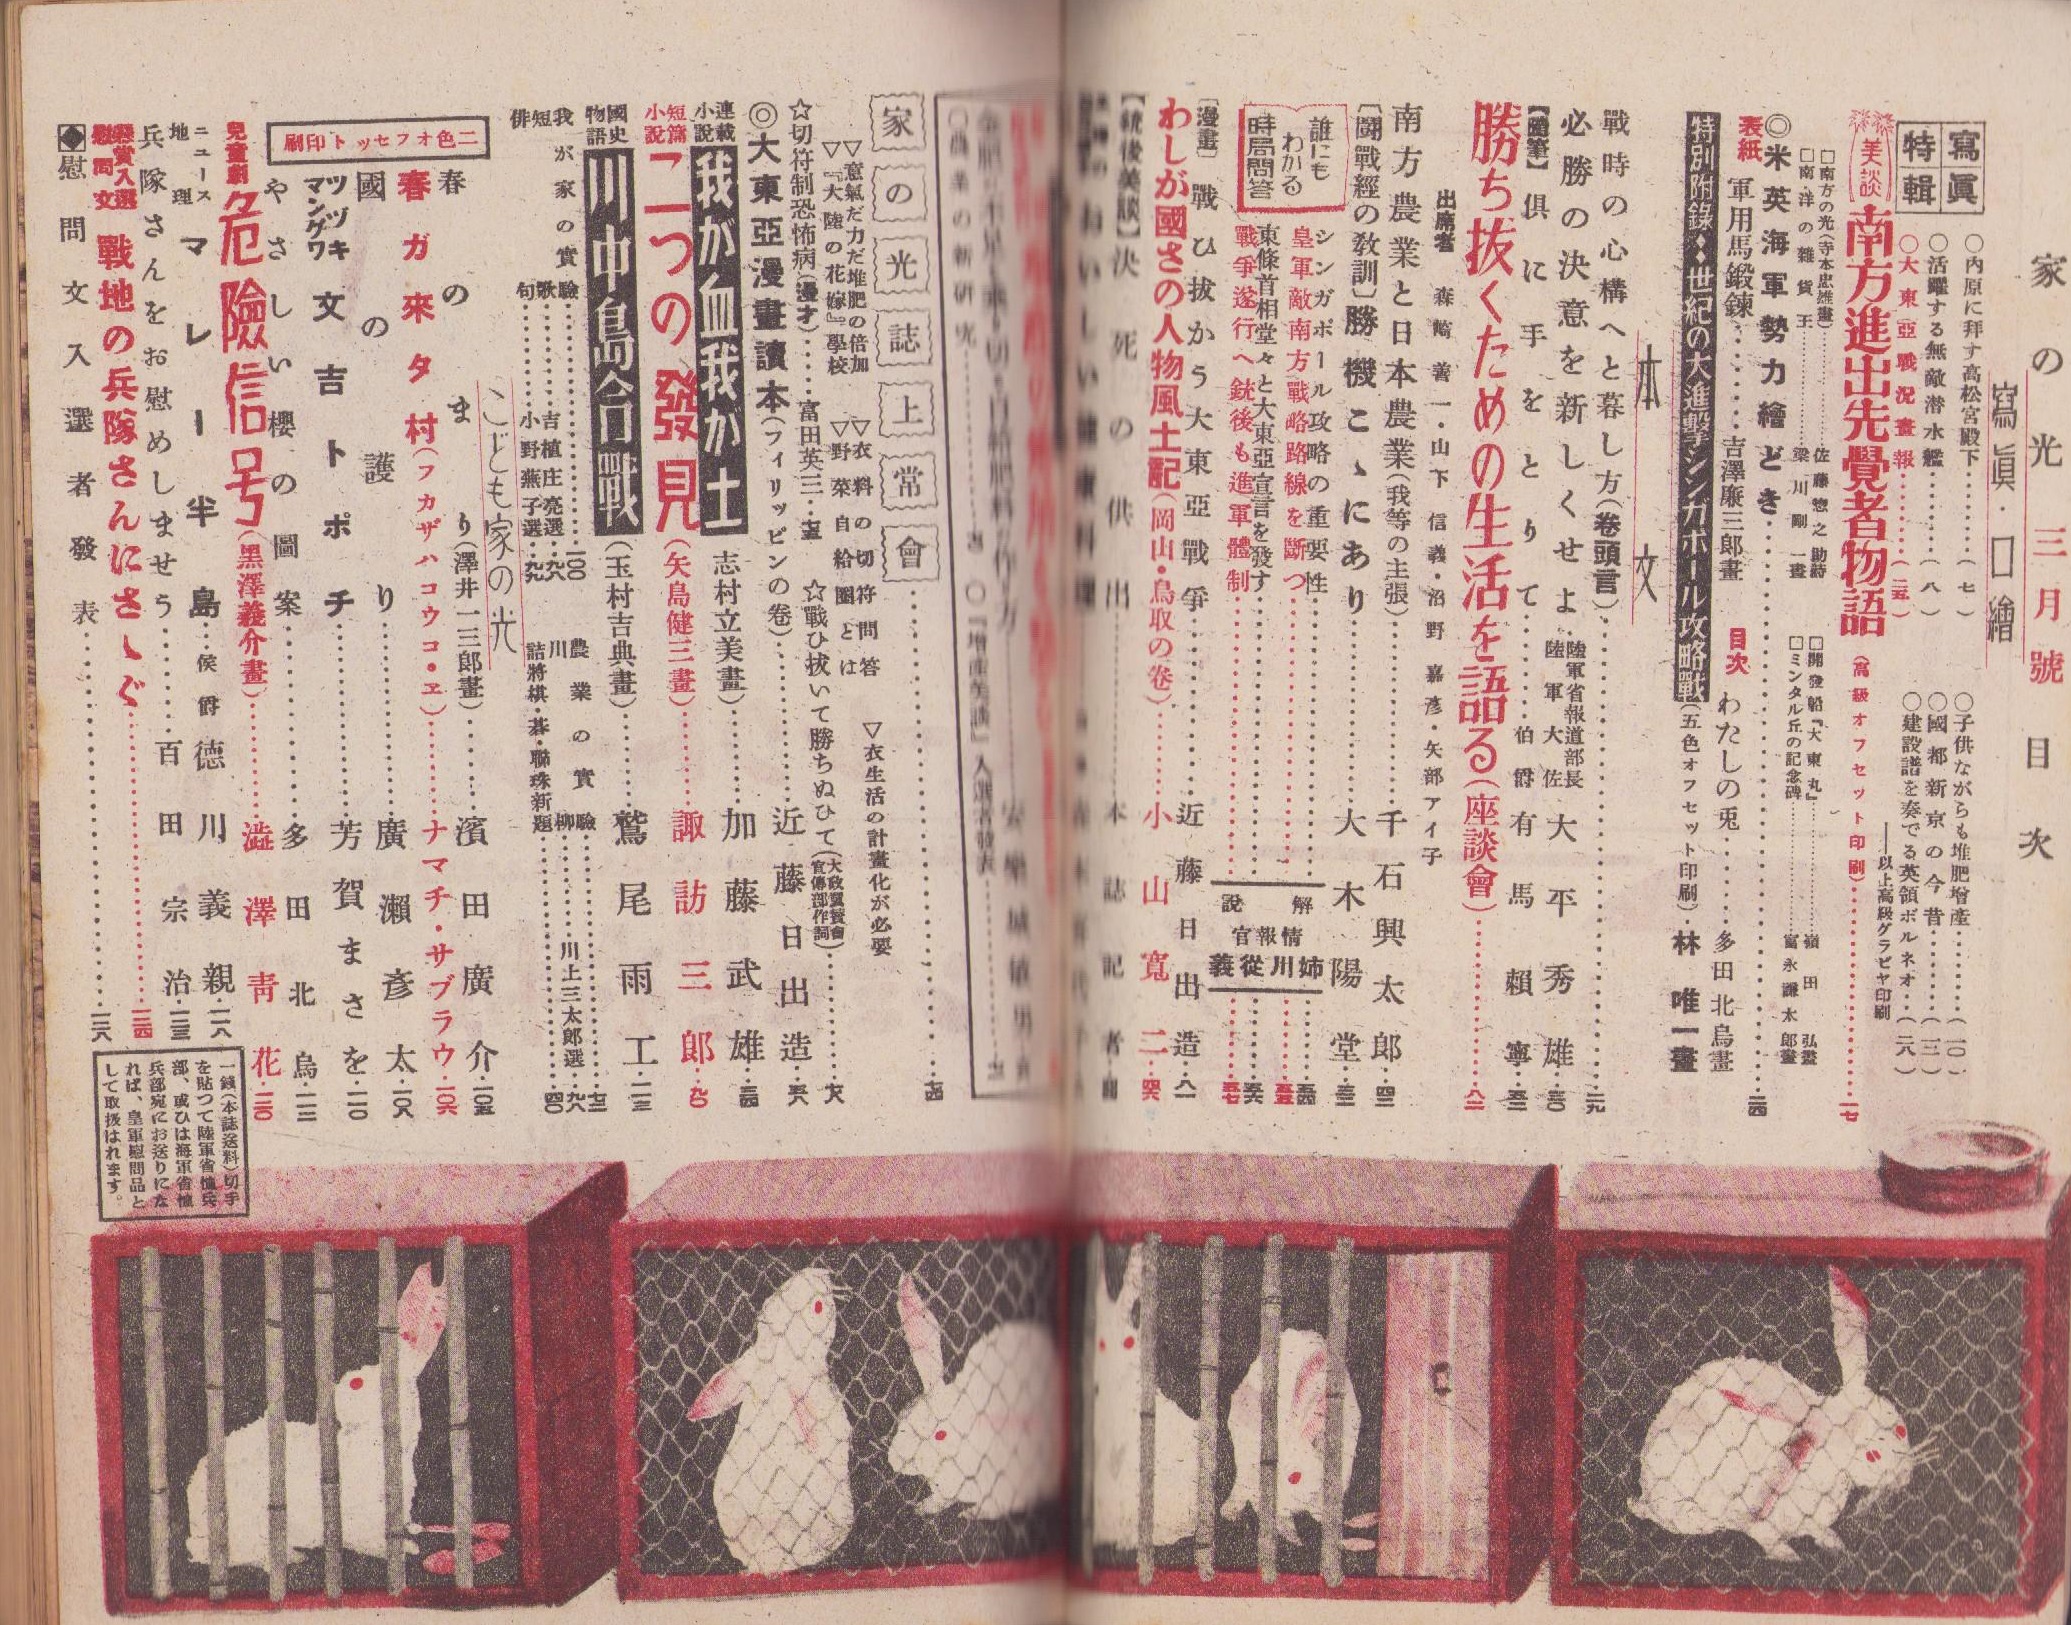 家の光 三月號 目次
寫眞・口繪
寫眞特輯
○内原に拜す高松宮殿下……(七)
○活躍する無敵潜水艦……(八)
○大東亞戰況畫報……(二五)
○子供ながらも堆肥増産……(一〇)
○國都新京の今昔……(一二)
○建設譜を奏でる英領ボルネオ…(二八)
――以上高級グラビヤ印刷
美談 南方進出先覺者物語(高級オフセット印刷)……一七
□南方の光(寺本忠雄畫)……佐藤惣之助詩
□南洋の雜貨王……梁川剛一畫
□開發船『大東丸』……嶺田弘畫
□ミンタル丘の記念碑……富永謙太郎畫
◎米英海軍勢力繪どき……二四
表紙 軍用馬鍛鍊……吉澤廉三郎畫
目次 わたしの兎……多田北烏畫
特別附錄◆世紀の大進撃シンガポール攻略戰(五色オフセット印刷)・林唯一畫
本文
戰時の心構へと暮し方(卷頭言)……二九
必勝の決意を新しくせよ・陸軍省報道部長 陸軍大佐 大平秀雄・三〇
【隨筆】倶に手をとりて……伯爵 有馬賴寧・三二
勝ち抜くための生活を語る(座談會)……八二
出席者 森崎善一・山下信義・沼野嘉彦・矢部アイ子
南方農業と日本農業(我等の主張)……千石興太郎・四二
【鬪戰經の敎訓】勝機こゝにあり……大木陽堂・三三
誰にもわかる時局問答
シンガポール攻略の重要性……五四
皇軍敵南方戰略路線を斷つ……五五
東條首相堂々と大東亞宣言を發す……五六
戰爭遂行へ銃後も進軍體制……五七
解説 情報官 姉川從義
【漫畫】戰ひ抜かう大東亞戰爭……近藤日出造・八一
わしが國さの人物風土記(岡山・鳥取の卷)……小山寬二・四六
【銃後美談】決死の供出……本誌記者
○農業の新研究
○『増産美談』入選者發表
家の光誌上常會……七四
▽意氣だ力だ堆肥の倍加
▽『大陸の花嫁』學校
▽衣料の切符問答
▽野菜自給圈とは
▽衣生活の計畫化が必要
☆切符制恐怖病(漫才)……富田英三・
☆戰ひ抜いて勝ちぬひて(大政翼贊會宣傳部作詞)……七八
◎大東亞漫畫讀本(フィリッピンの卷)……近藤日出造・五八
連載小説 我が血我が土(志村立美畫)……加藤武雄・三四
短篇小説 二つの發見(矢島健三畫)……諏訪三郎・九〇
國史物語 川中島合戰(玉村吉典畫)……鷲尾雨工・一一三
我が家の實驗……一〇〇
短歌……吉植庄亮選・九八
俳句……小野蕪子選・九九
農業の實驗……七三
川柳……川上三太郎選・九八
詰將棋・碁・聯珠新題……四〇
こども家の光
二色オフセット印刷
春のまり(澤井一三郎畫)……濱田廣介・一〇五
春ガ來タ村(フカザハコウコ・ヱ)……ナマチ・サブラウ・一〇六
國の護り……廣瀬彦太・一〇八
ツヅキマングワ 文吉トポチ……芳賀まさを・一一〇
やさしい櫻の圖案……多田北烏・一一二
兒童劇 危險信号(黒澤義介畫)……澁澤靑花・一二〇
ニュース地理 マレー半島・侯爵 德川義親・一一八
兵隊さんをお慰めしませう……百田宗治・一二三
懸賞入選慰問文 戰地の兵隊さんにさゝぐ……一二四
◆慰問文入選者發表……一二八
一錢(本誌送料)切手を貼つて陸軍省恤兵部、或ひは海軍省恤兵部宛にお送りになれば、皇軍慰問品として取扱はれます。